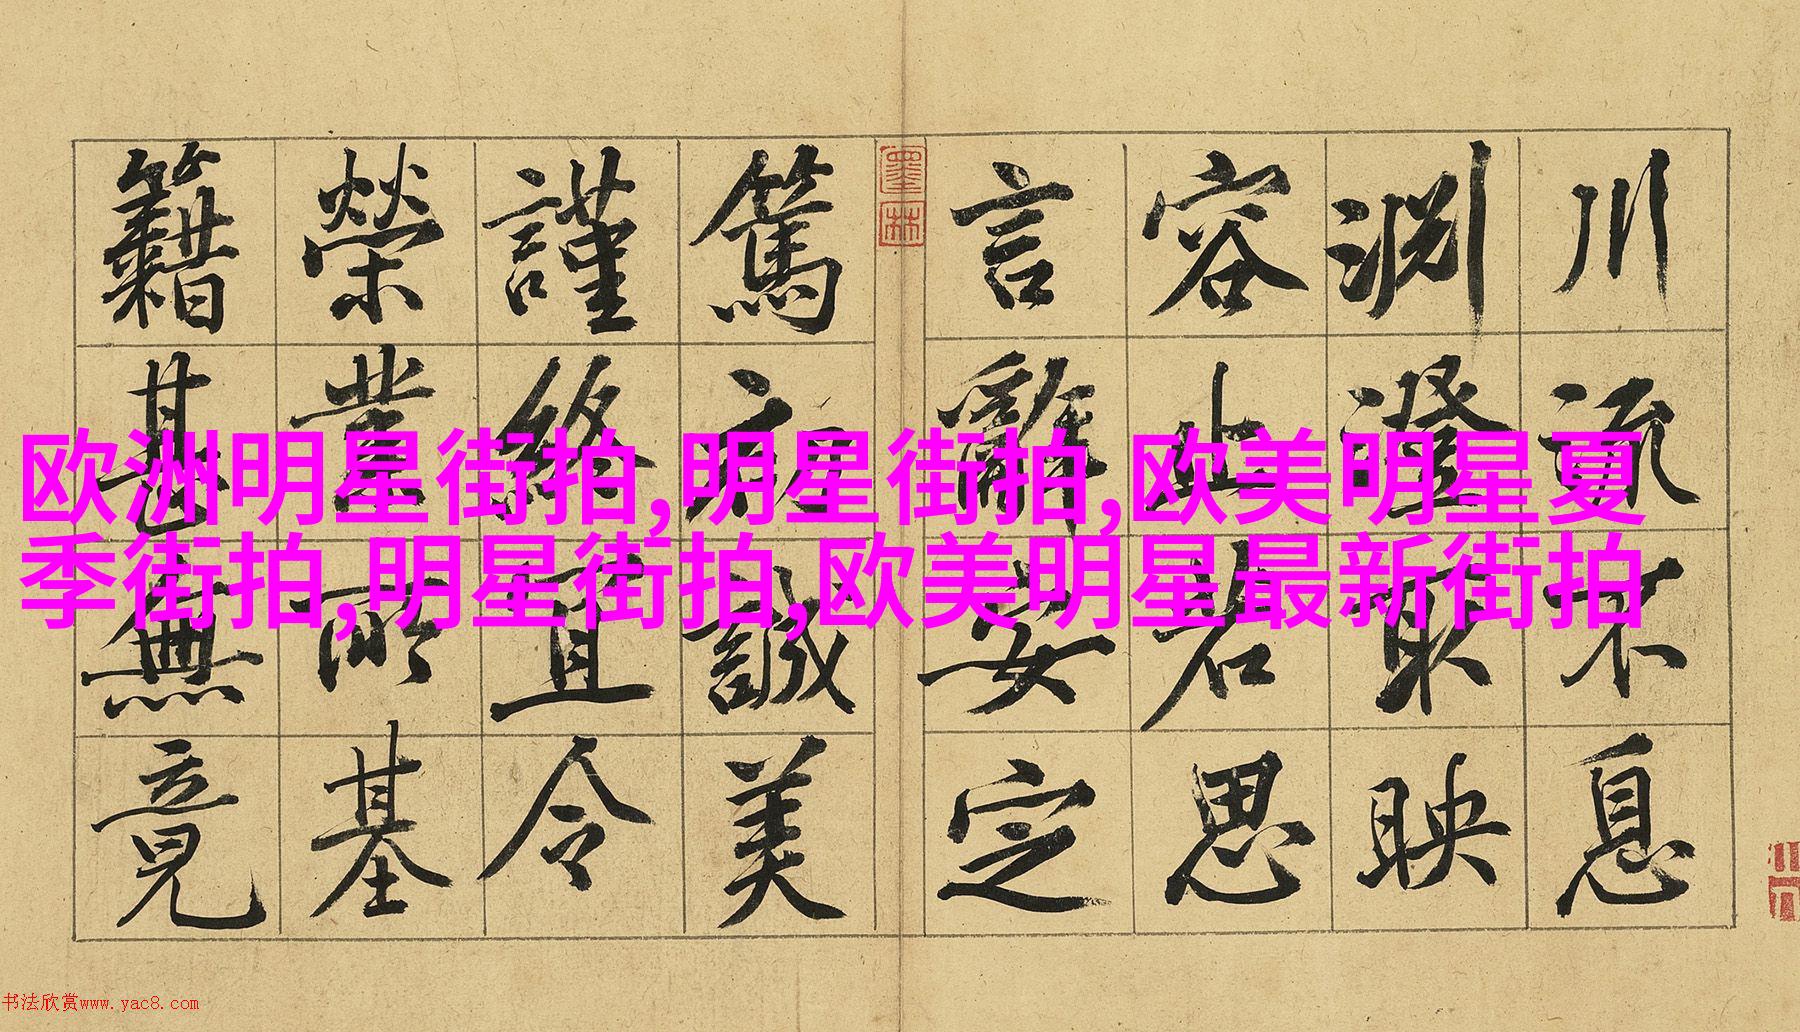 川流不息
淵澄取映
容止若思
言辭安定
墨林
篤初誠美
謹終宜令
榮業所基
籍甚無竟
欧洲明星街拍,明星街拍,欧美明星夏
季街拍,明星街拍,欧美明星最新街拍
书法欣赏www.yac8.com